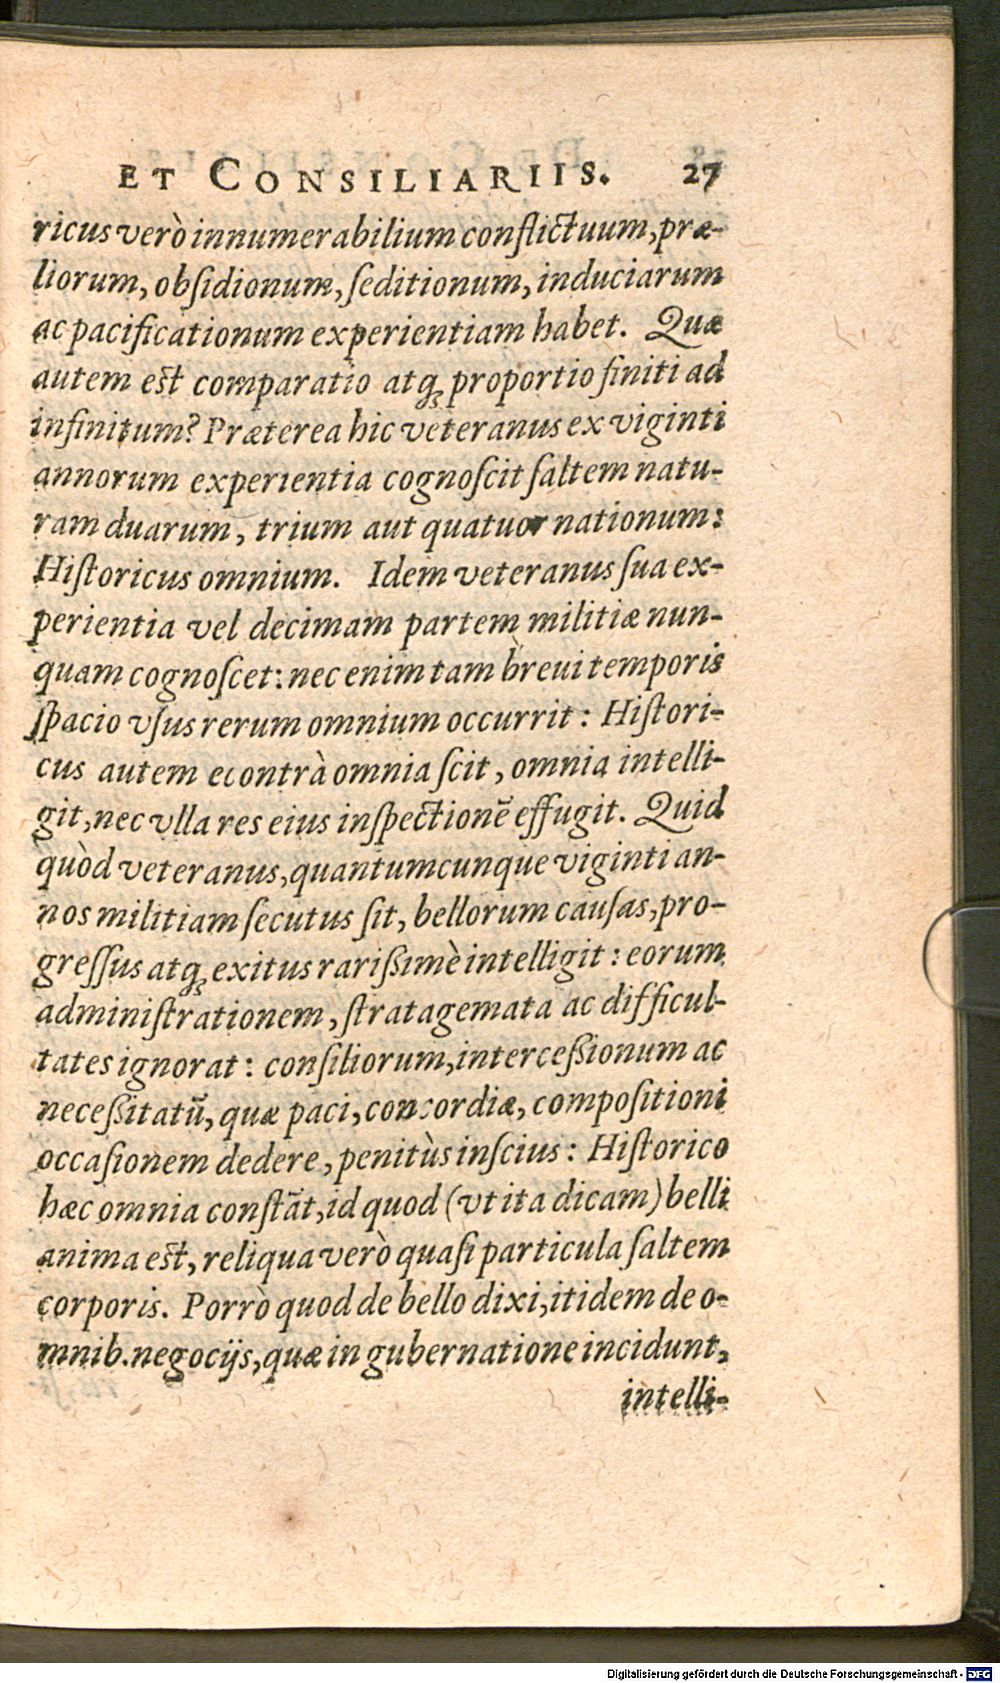 ET CONSILIARIIS. 27
ricus verò innumerabilium conflictuum, præ-
liorum, obſidionum, ſeditionum, induciarum
ac pacificationum experientiam habet. Quæ
autem eſt comparatio atq́ꝫ proportio finiti ad
infinitum? Præterea hic veteranus ex viginti
annorum experientia cognoſcit ſaltem natu-
ram duarum, trium aut quatuor nationum:
Hiſtoricus omnium. Idem veteranus ſua ex-
perientia vel decimam partem militiæ nun-
quam cognoſcet: nec enim tam breui temporis
ſpacio vſus rerum omnium occurrit: Hiſtori-
cus autem econtrà omnia ſcit, omnia intelli-
git, nec vlla res eius inſpectionē effugit. Quid
quòd veteranus, quantumcunque viginti an-
nos militiam ſecutus ſit, bellorum cauſas, pro-
greſſus atqꝫ exitus rariſsimè intelligit: eorum
adminiſtrationem, ſtratagemata ac difficul-
tates ignorat: conſiliorum, interceſsionum ac
neceſsitatū, quæ paci, concordiæ, compoſitioni
occaſionem dedere, penitùs inſcius: Hiſtorico
hæc omnia conſtāt, id quod (vt ita dicam) belli
anima eſt, reliqua verò quaſi particula ſaltem
corporis. Porrò quod de bello dixi, itidem de o-
mnib. negocijs, quæ in gubernatione incidunt,
intelli-
Digitalisierung gefördert durch die Deutsche Forschungsgemeinschaft - DFG